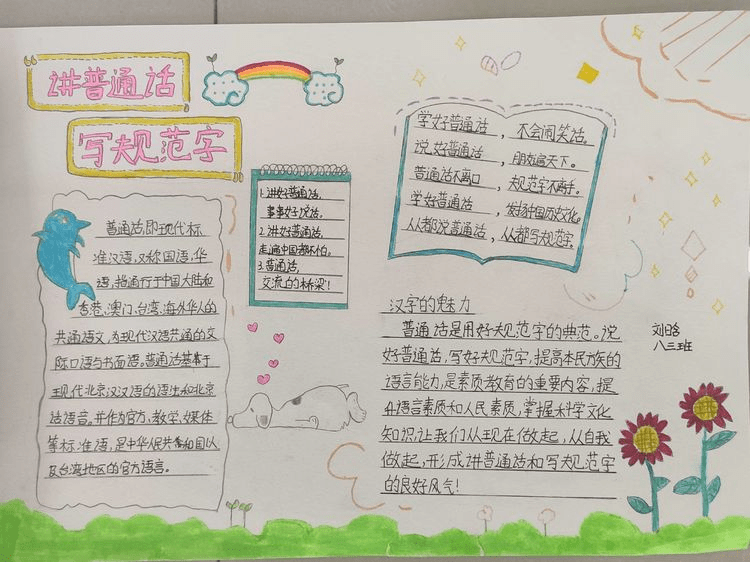 讲普通话
写规范字
普通话,即现代标
准汉语,又称国语,华
语,指通行于中国大陆和
香港、澳门、台湾、海外华人的
共通语文,为现代汉语共通的交
际口语与书面语。普通话基于
现代北京汉语的语法和北京
话语音。并作为官方、教学、媒体
等标准语,是中华人民共和国以
及台湾地区的官方语言。
1.讲好普通话,
事事好说话。
2.讲好普通话,
走遍中国都不怕。
3.普通话,
交流的桥梁!
学好普通话,不会闹笑话。
说好普通话,朋友遍天下。
普通话不离口,规范字不离手。
学好普通话,发扬中国历史文化。
人人都说普通话,人人都写规范字。
汉字的魅力
普通话是用好规范字的典范。说
好普通话,写好规范字,提高本民族的
语言能力,是素质教育的重要内容,提
升语言素质和人民素质,掌握科学文化
知识,让我们从现在做起,从自我
做起,形成讲普通话和写规范字
的良好风气!
刘晗
八三班